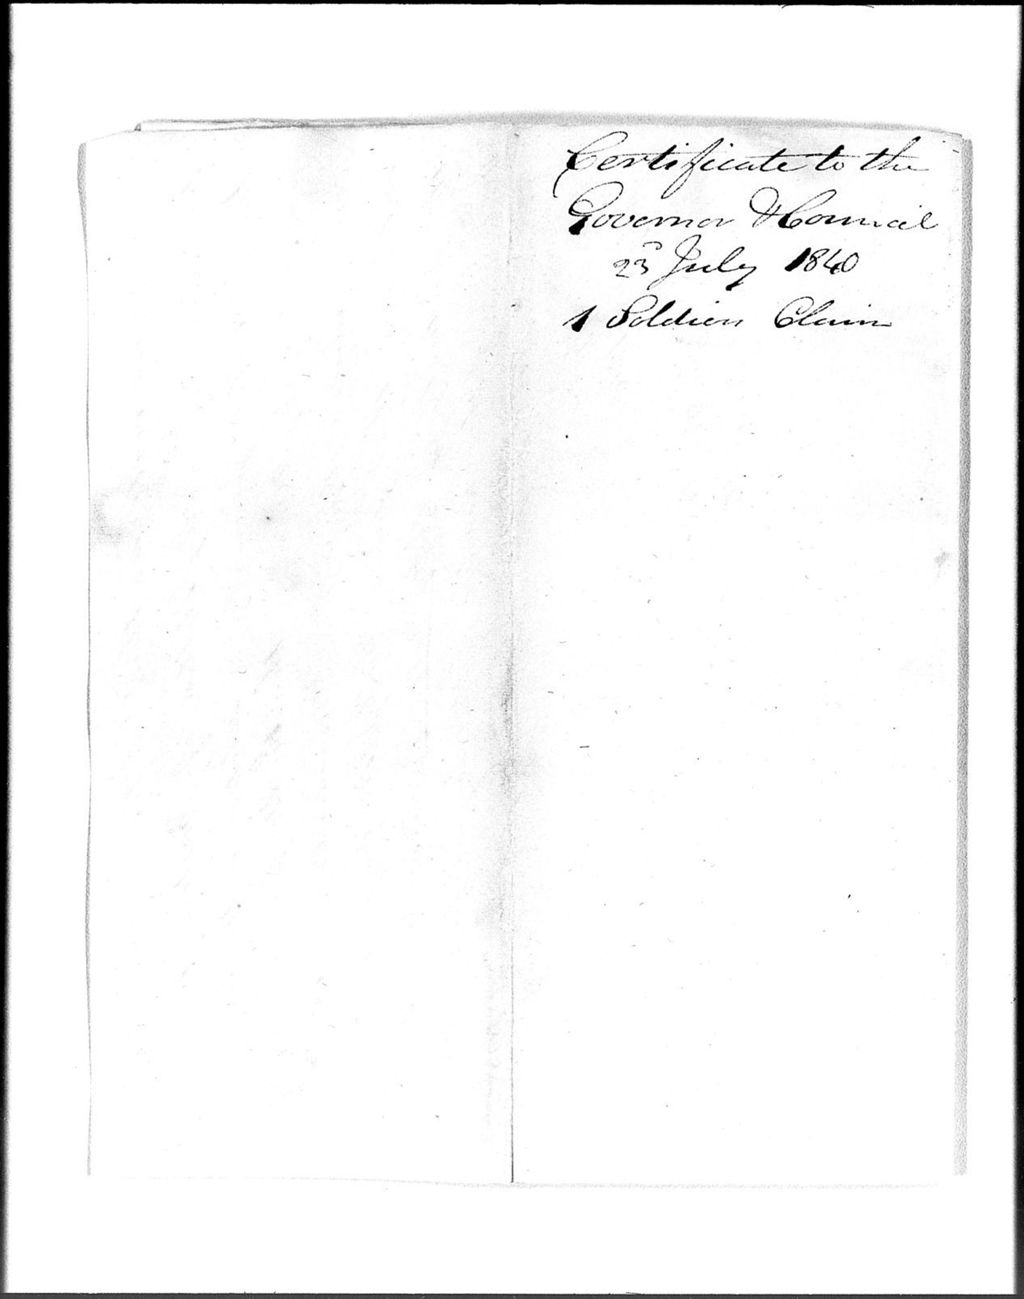 Certificate to the
Governor & Council
23d July 1840
1 Soldiers Claim